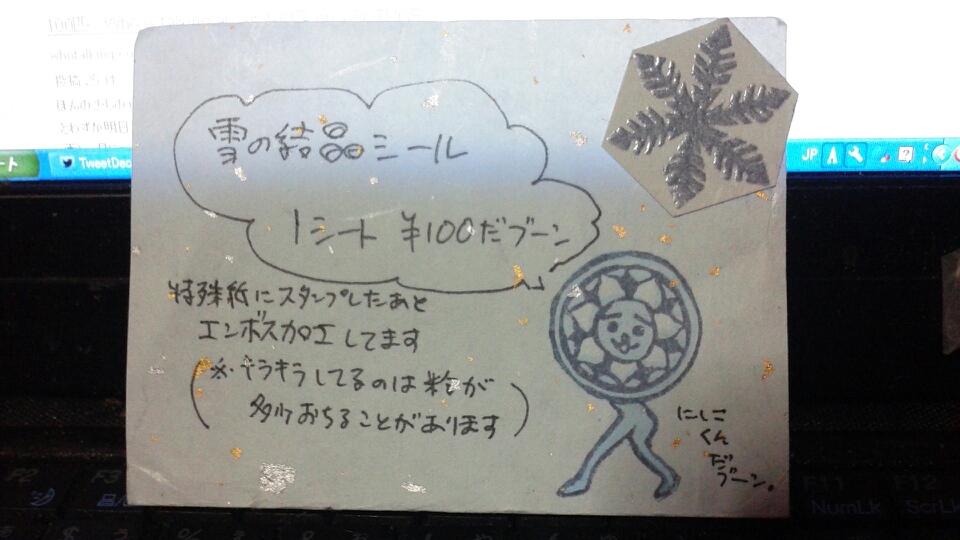 雪の結晶シール
1シート ¥100だブーン
特殊紙にスタンプしたあと
エンボス加工してます
(※キラキラしてるのは粉が
多少おちることがあります)
にしこ
くん
だ
ブーン。
TweetDec
JP
F2
F3
F11
F12
NumLk
ScrLk